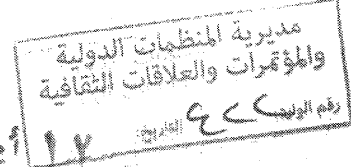 مديرية المنظمات الدولية
والمؤتمرات والعلاقات الثقافية
رقم الوارد ٤٢٢ التاريخ: ١٧